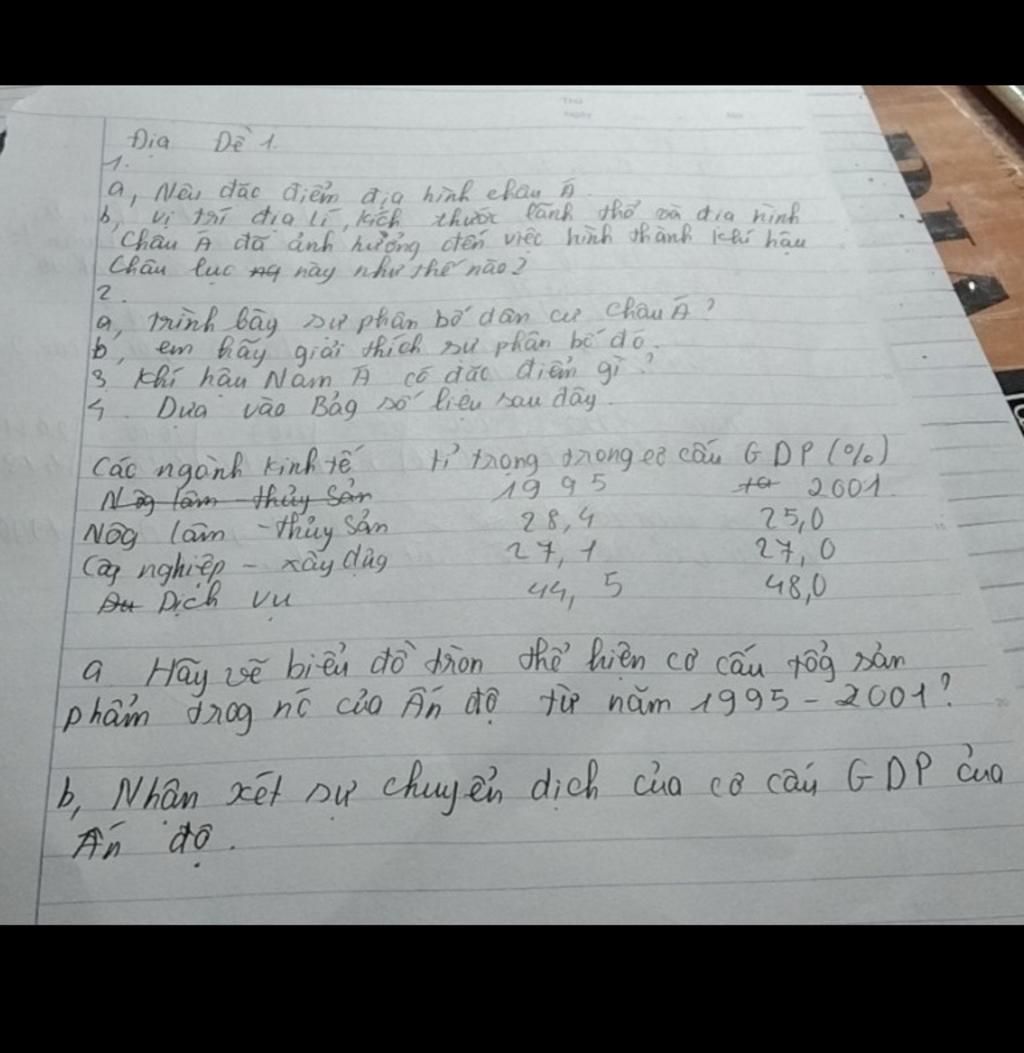 Địa Đề 1.
1.
a, Nêu đặc điểm địa hình châu Á
b, vị trí địa lí, kích thước lãnh thổ và địa hình
Châu Á đã ảnh hưởng đến việc hình thành khí hậu
Châu lục này như thế nào?
2.
a, trình bày sự phân bố dân cư Châu Á?
b, em hãy giải thích sự phân bố đó.
3 Khí hậu Nam Á có đặc điểm gì?
4. Dựa vào Bảg số liệu sau đây.
Các ngành kinh tế tỉ trọng trong cơ cấu GDP (%)
Nôg lâm - thủy sản 1995 2001.
Nôg lâm - thủy sản 28,4 25,0
Côg nghiệp - xây dựg 27,1 27,0
Dịch vụ 44,5 48,0
a Hãy vẽ biểu đồ tròn thể hiện cơ cấu tổg sản
phẩm trog nc của Ấn độ từ năm 1995 - 2001?
b, Nhận xét sự chuyển dịch của cơ cấu GDP của
Ấn độ.